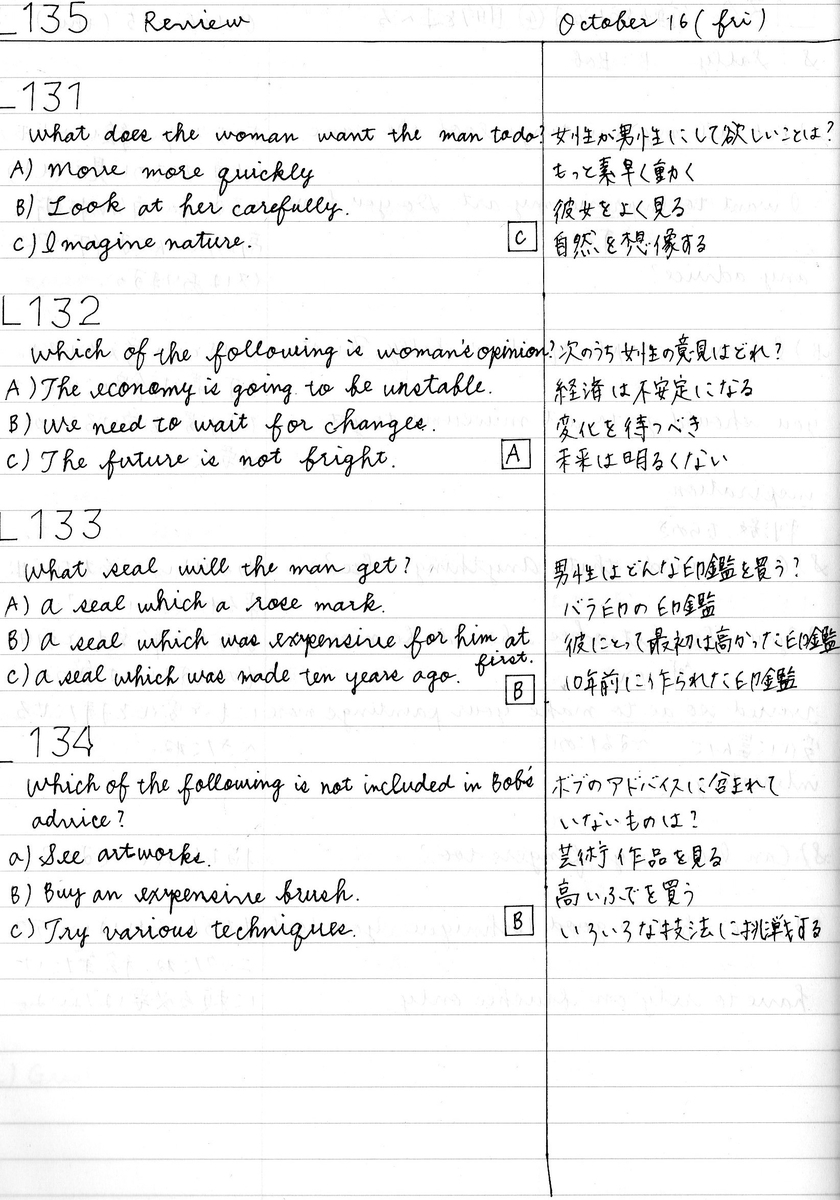 L135 Review October 16 (fri)
L131
What does the woman want the man to do? 女性が男性にして欲しいことは?
A) Move more quickly もっと素早く動く
B) Look at her carefully. 彼女をよく見る
C) Imagine nature. C 自然を想像する
L132
Which of the following is woman's opinion? 次のうち女性の意見はどれ?
A) The economy is going to be unstable. 経済は不安定になる
B) We need to wait for changes. 変化を待つべき
C) The future is not bright. A 未来は明るくない
L133
What seal will the man get? 男性はどんな印鑑を買う?
A) a seal which a rose mark. バラ印の印鑑
B) a seal which was expensive for him at first. 彼にとって最初は高かった印鑑
C) a seal which was made ten years ago. B 10年前に作られた印鑑
L134
Which of the following is not included in Bob's ボブのアドバイスに含まれて
advice? いないものは?
a) See artworks. 芸術作品を見る
B) Buy an expensive brush. 高いふでを買う
C) Try various techniques. B いろいろな技法に挑戦する